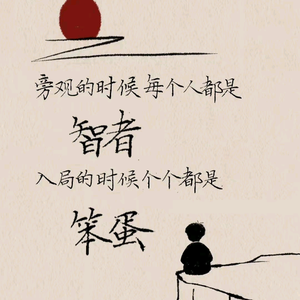 旁观的时候每个人都是
智者
入局的时候个个都是
笨蛋